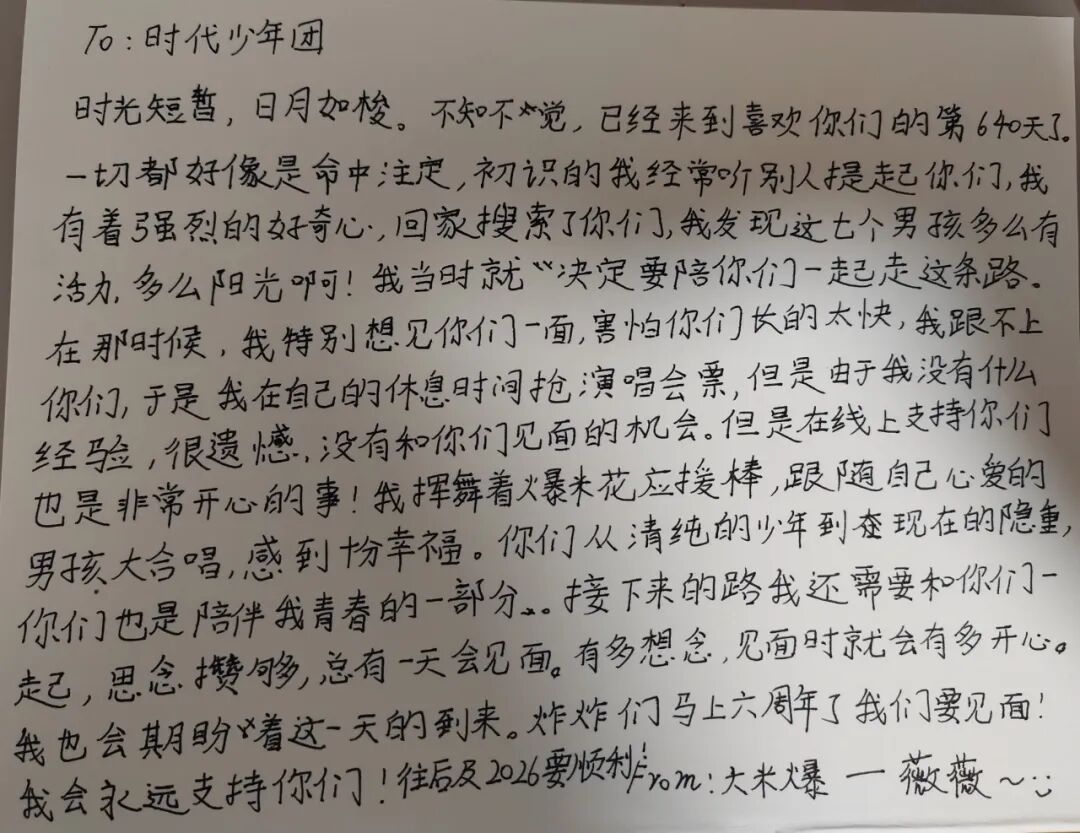 To:时代少年团
时光短暂，日月如梭。不知不觉，已经来到喜欢你们的第640天了。
一切都好像是命中注定，初识的我经常听别人提起你们，我
有着强烈的好奇心，回家搜索了你们，我发现这七个男孩多么有
活力，多么阳光啊！我当时就决定要陪你们一起走这条路。
在那时候，我特别想见你们一面，害怕你们长的太快，我跟不上
你们，于是我在自己的休息时间抢演唱会票，但是由于我没有什么
经验，很遗憾，没有和你们见面的机会。但是在线上支持你们
也是非常开心的事！我挥舞着爆米花应援棒，跟随自己心爱的
男孩大合唱，感到十分幸福。你们从清纯的少年到现在的隐重，
你们也是陪伴我青春的一部分、。接下来的路我还需要和你们一
起，思念攒够多，总有一天会见面。有多想念，见面时就会有多开心。
我也会期盼着这一天的到来。炸炸们马上六周年了我们要见面！
我会永远支持你们！往后及2026要顺利！From:大米爆 一薇薇～